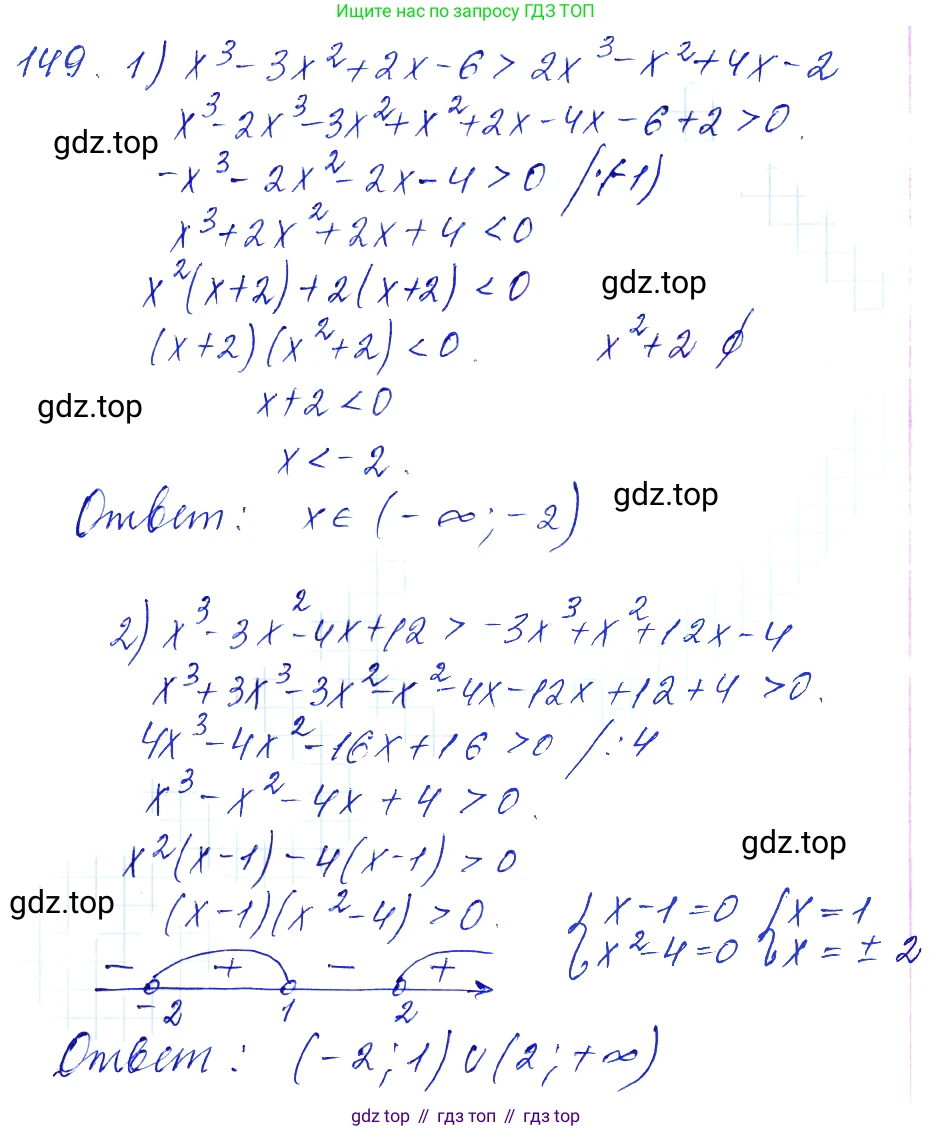 Ищите нас по запросу ГДЗ ТОП
149. 1) x³ - 3x² + 2x - 6 > 2x³ - x² + 4x - 2
x³ - 2x³ - 3x² + x² + 2x - 4x - 6 + 2 > 0.
gdz.top
-x³ - 2x² - 2x - 4 > 0 /·(-1)
x³ + 2x² + 2x + 4 < 0
x²(x+2) + 2(x+2) < 0
gdz.top
(x+2)(x²+2) < 0. x²+2 ∅
gdz.top
x+2 < 0
x < -2.
gdz.top
Ответ: x ∈ (-∞; -2)
2) x³ - 3x² - 4x + 12 > -3x³ + x² + 12x - 4
x³ + 3x³ - 3x² - x² - 4x - 12x + 12 + 4 > 0.
4x³ - 4x² - 16x + 16 > 0 /:4
x³ - x² - 4x + 4 > 0.
gdz.top
x²(x-1) - 4(x-1) > 0
gdz.top
(x-1)(x²-4) > 0. { x-1=0 { x=1
{ x²-4=0 { x=±2
- + - +
-2 1 2
Ответ: (-2; 1) ∪ (2; +∞)
gdz.top // гдз топ // гдз.top